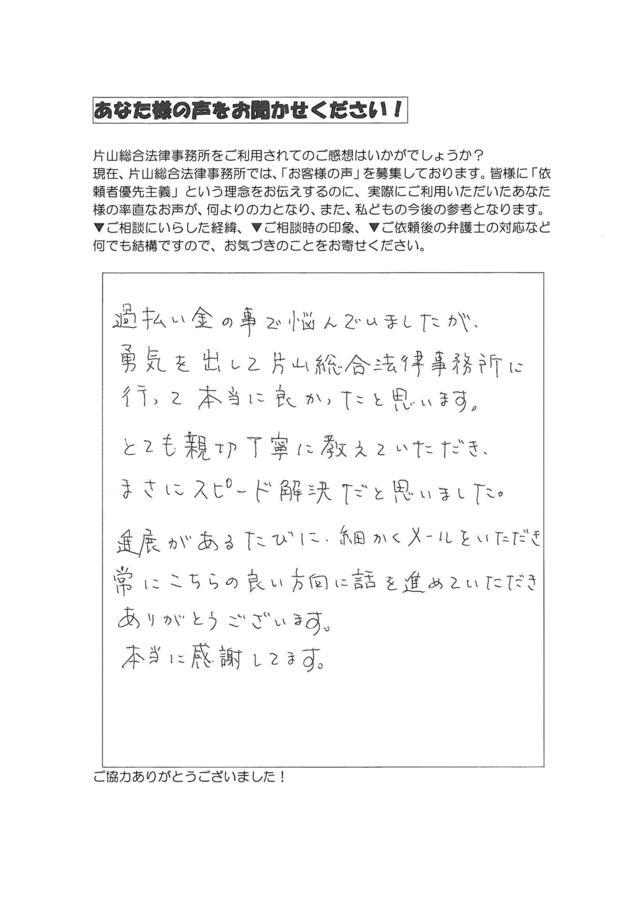 あなた様の声をお聞かせください！
片山総合法律事務所をご利用されてのご感想はいかがでしょうか？
現在、片山総合法律事務所では、「お客様の声」を募集しております。皆様に「依
頼者優先主義」という理念をお伝えするのに、実際にご利用いただいたあなた
様の率直なお声が、何よりの力となり、また、私どもの今後の参考となります。
▼ご相談にいらした経緯、▼ご相談時の印象、▼ご依頼後の弁護士の対応など
何でも結構ですので、お気づきのことをお寄せください。
過払い金の事で悩んでいましたが、
勇気を出して片山総合法律事務所に
行って本当に良かったと思います。
とても親切丁寧に教えていただき、
まさにスピード解決だと思いました。
進展があるたびに、細かくメールをいただき
常にこちらの良い方向に話を進めていただき
ありがとうございます。
本当に感謝してます。
ご協力ありがとうございました！